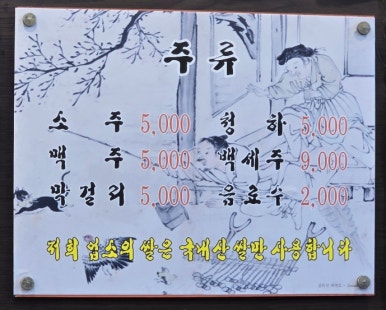 주류
소주 5,000 청하 5,000
맥주 5,000 백세주 9,000
막걸리 5,000 음료수 2,000
저희 업소의 쌀은 국내산 쌀만 사용합니다